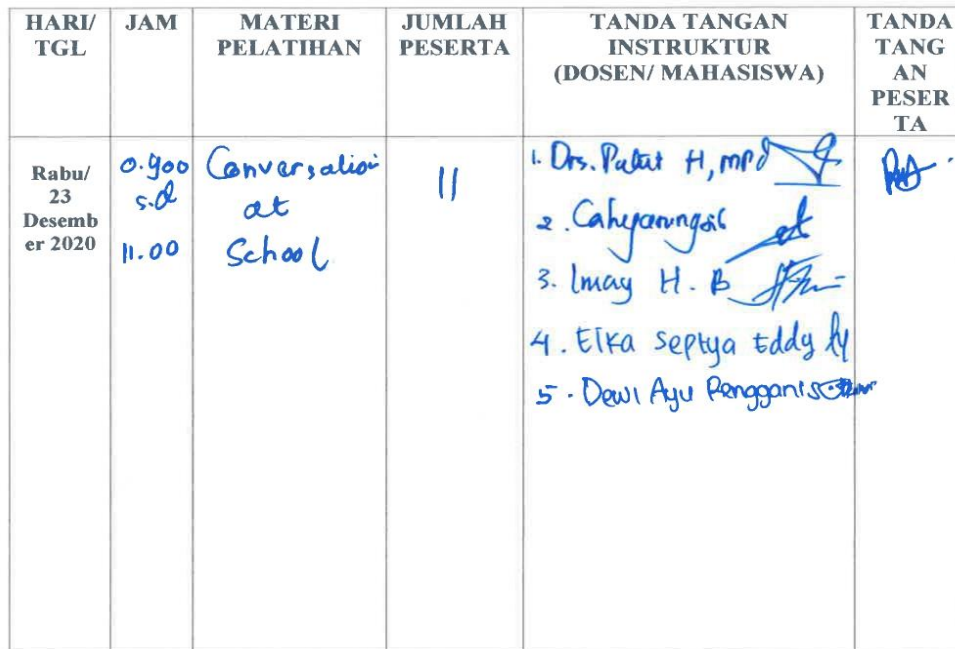 HARI/
TGL
JAM
MATERI
PELATIHAN
JUMLAH
PESERTA
TANDA TANGAN
INSTRUKTUR
(DOSEN/ MAHASISWA)
TANDA
TANG
AN
PESER
TA
Rabu/
23
Desemb
er 2020
0.900
s.d
11.00
Conversation
at
School
11
1. Drs. H, mpd
2.
3. Imay H. B
4. Elka Septya Eddy
5. Dewi Ayu Rengganis